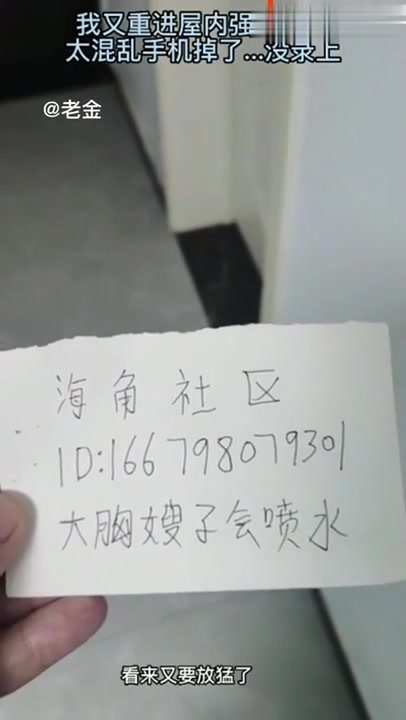 我又重进屋内强
太混乱手机掉了...没录上
@老金
海角社区
ID:166798079301
大胸嫂子会喷水
看来又要放猛了